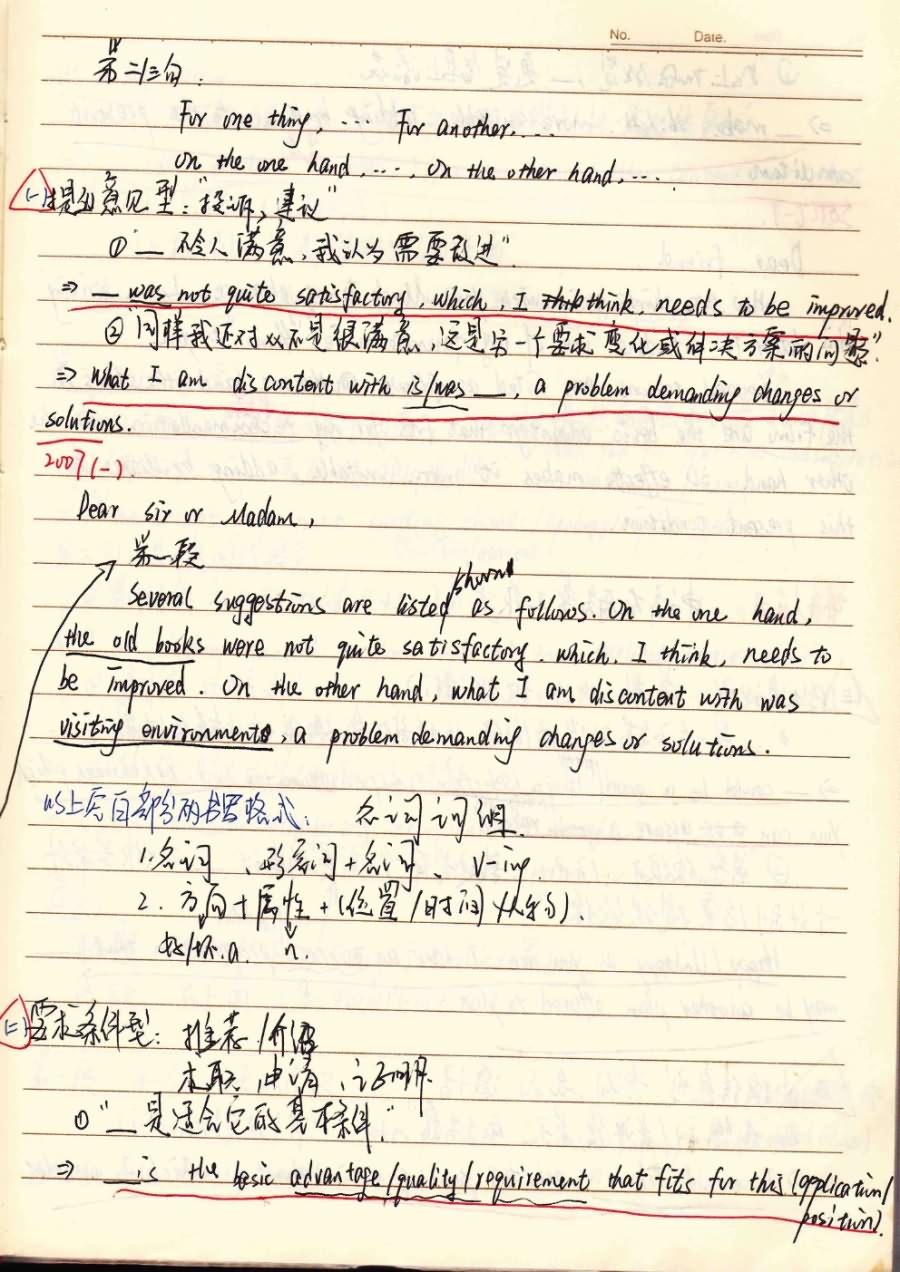 No. Date.
第二/三句:
For one thing, .... For another...
On the one hand, ...., On the other hand, ....
(一)提出意见型:"投诉,建议"
①"__ 不令人满意,我认为需要改进"
⇒ __ was not quite satisfactory which, I think, needs to be improved.
②"同样我还对xx不是很满意,这是另一个要求变化或解决方案的问题".
⇒ what I am discontent with is/was __, a problem demanding changes or
solutions.
2007(一)
Dear Sir or Madam,
第一段
Several suggestions are listed as follows. On the one hand,
shown
the old books were not quite satisfactory. which. I think, needs to
be improved. On the other hand, what I am discontent with was
visiting environments a problem demanding changes or solutions.
以上空白部分的书写格式: 名词词组.
1.名词 、形容词+名词 、 v-ing
2. 方向+属性+(位置/时间/从句).
好/坏.a. n.
(二)需求条件型: 推荐/介绍
求职,申请,证明.
①"__是适合它的基本条件."
⇒ __is the basic advantage/quality/requirement that fits for this (application/
position).